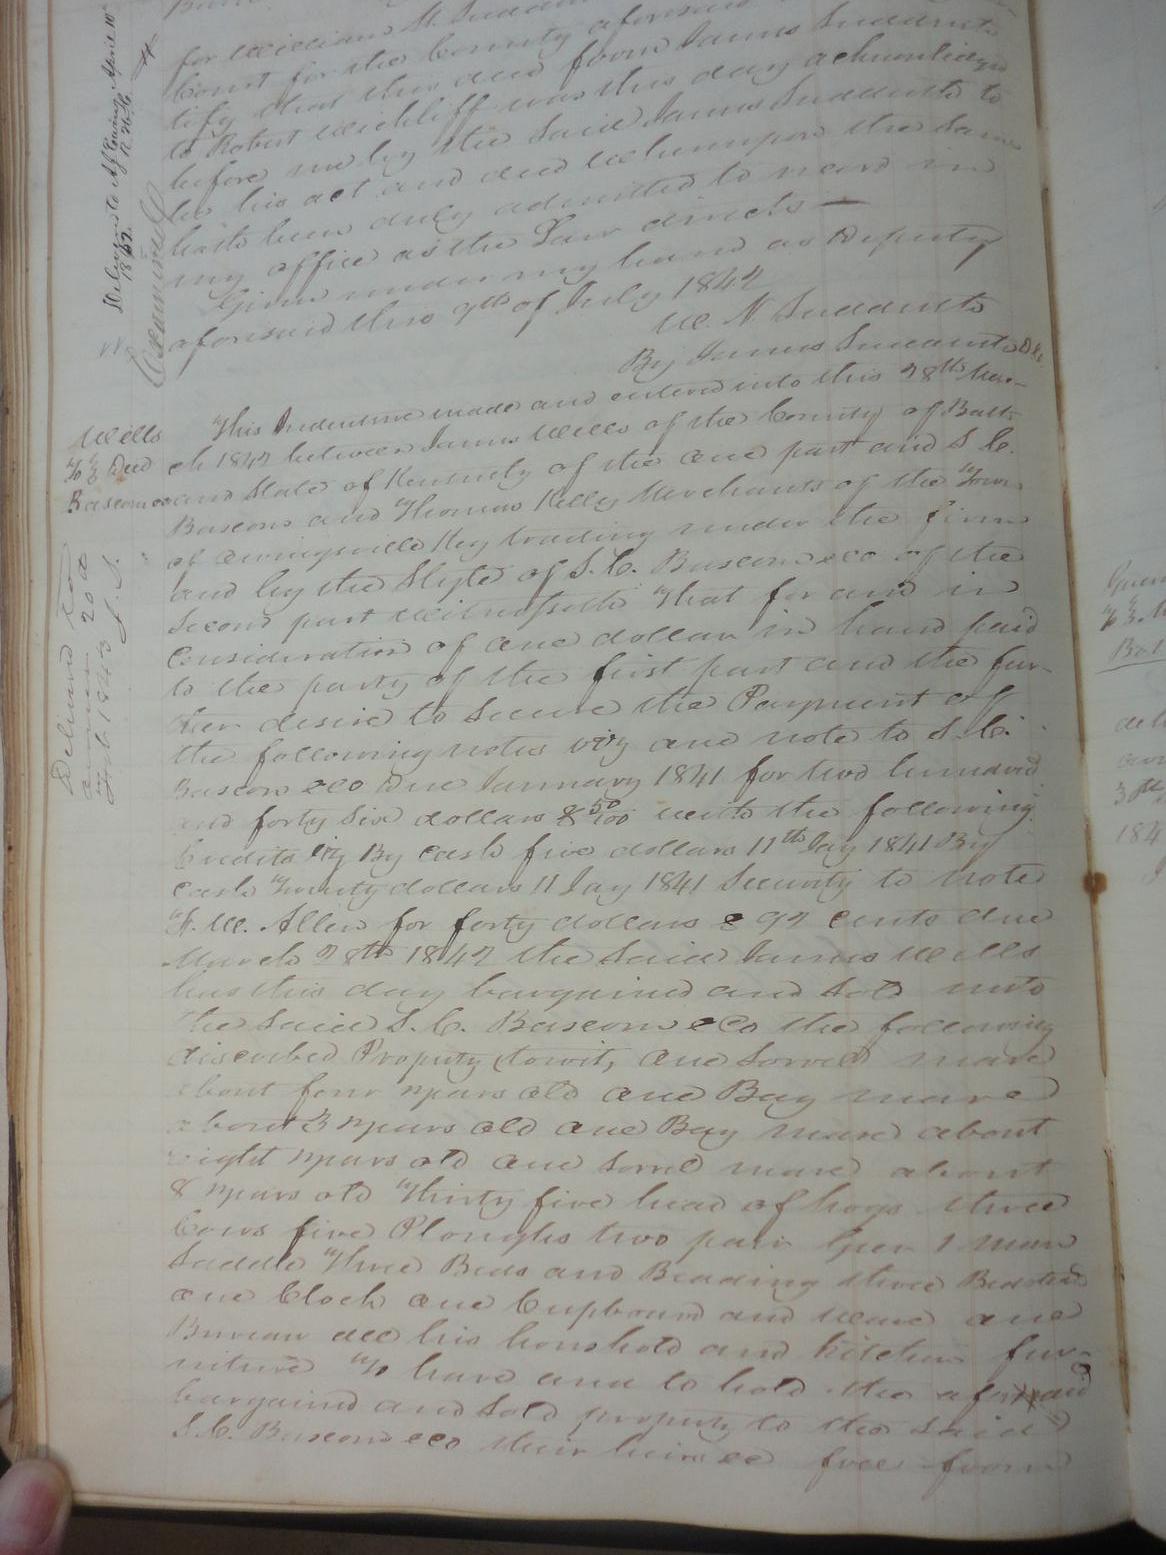 for William N. Sudduth
Court for the County aforesaid
tify that this deed from James Sudduth
to Robert Wickliff was this day acknowledged
before me by the Said James Sudduth to
be his act and deed Whereupon the Same
hath been duly admitted to record in
my office as the Law directs —
Given under my hand as Deputy
aforesaid this 9th of July 1842
W. N. Sudduth
By James Sudduth D.C.
Wells
To } Deed
Bascom &co
This Indenture made and entered into this 28th Mar-
ch 1842 between James Wells of the County of Bath
and State of Kentucky of the one part and S. C.
Bascom and Thomas Kelly Merchants of the Town
of Owingsville Key trading under the firm
and by the Style of S. C. Bascom &co of the
Second part Witnesseth That for and in
Consideration of one dollar in hand paid
to the party of the first part and the fur-
ther desire to Secure the Payment of
the following notes viz one note to S. C.
Bascom &co Due January 1841 for two hundred
and forty Six dollars & 50/100 with the following
Credits viz By Cash five dollars 11th Jay 1841 By
Cash Twenty dollars 11 Jay 1841 Security to note
J. W. Allen for forty dollars & 92 cents due
March 28th 1842 the Said James Wells
has this day bargained and Sold unto
the Said S. C. Bascom &Co the following
discribed Property (towit, one Sorrel mare
about four years old one Bay mare
about 3 years old one Bay mare about
eight years old one Sorrel mare about
8 years old Thirty five head of hogs three
Cows five Ploughs two pair Geer 1 man
Saddle Three Beds and Beading three Bedsteds
one Clock one Cupboard and ware one
Bureau all his houshold and kitchin fur-
niture To have and to hold the aforesaid
bargained and Sold property to the Said
S. C. Bascom &co their heirs &c free from
Delivered to A. J. Ewing April 10
1862
Examined
Delivered to
20
Feb 1843 J. S.